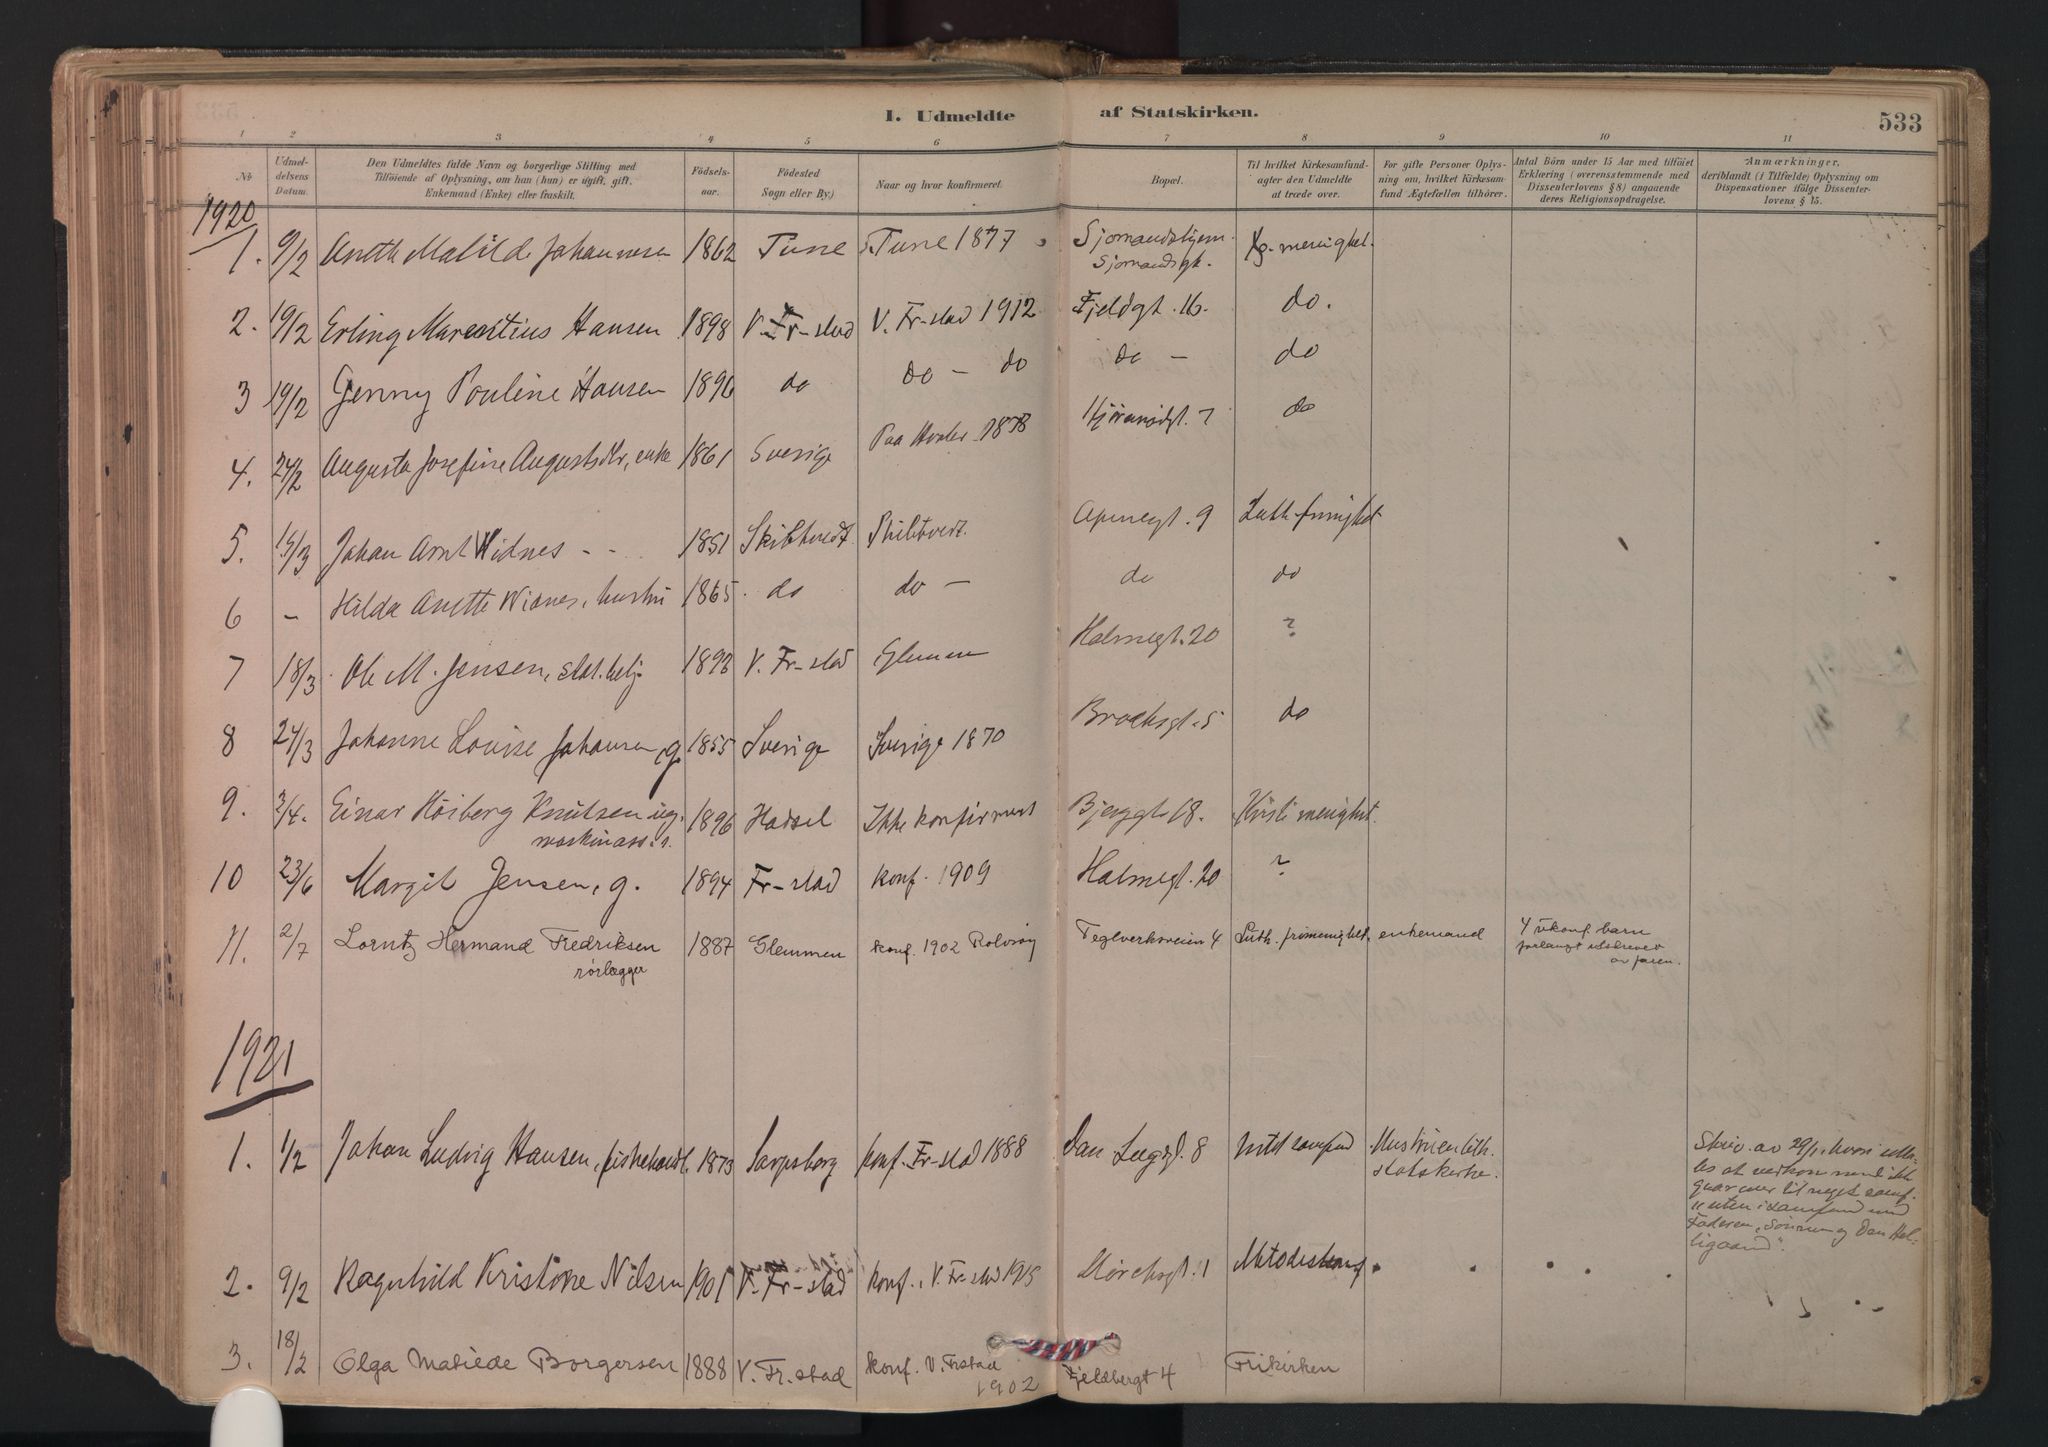 I. Udmeldte af Statskirken. 533
1 2 3 4 5 6 7 8 9 10 11
No
Udmel-
delsens
Datum.
Den Udmeldtes fulde Navn og borgerlige Stilling med
Tilføiende af Oplysning, om han (hun) er ugift, gift,
Enkemand (Enke) eller fraskilt.
Fødsels-
aar.
Fødested
Sogn eller By.)
Naar og hvor konfirmeret.
Bopæl.
Til hvilket Kirkesamfund-
agter den Udmeldte
at træde over.
For gifte Personer Oplys-
ning om, hvilket Kirkesam-
fund Ægtefællen tilhører.
Antal Børn under 15 Aar med tilføiet
Erklæring (overensstemmende med
Dissenterlovens § 8) angaaende
deres Religionsopdragelse.
Anmærkninger,
deriblandt (i Tilfælde) Oplysning om
Dispensationer ifølge Dissenter-
lovens § 15.
1920
1. 9/2 Anette Matilde Johannesen 1862 Tune Tune 1877 Sjomandshjem Sjomandsgt. menighet.
2. 19/2 Erling Mauritius Hansen 1898 V. Fr-stad V. Fr-stad 1912 Fjeldgt. 16. do.
3 19/2 Jenny Pouline Hansen 1896 do do - do do - do
4. 24/2 Augusta Josefine Augustsdtr, enke 1861 Sverige Paa Hvaler 1878 7 do
5. 15/3 Johan Arnt Widnes - - 1851 Skibtvedt Skibtvedt. 9 Luth. frimighet
6 - Hilda Anette Widnes, hustru 1865. do do - do do
7 18/3 Ole M. Jensen, stat. betj. 1893 V. Fr-stad Glemmen Holmegt. 20 ?
8 24/3 Johanne Louise Johansen, g. 1855 Sverige Sverige 1870 Brochsgt. 5 do
9. 3/4. Einar Høiberg Knutsen ug. 1896 Hadsel Ikke konfirmert Bjerggt. 18. Kristi menighet.
maskinass.
10 23/6 Margit Jensen, g. 1894 Fr-stad konf. 1909 Holmegt. 20 ?
11. 2/7 Lorntz Hermand Fredriksen 1887 Glemmen konf. 1902 Rolvsøy Teglverksveien 4 Luth. frimenighet, enkemand 4 ukonf. barn
rørlægger forlangt utskrevet
av faren.
1921
1. 1/2 Johan Ludvig Hansen, fiskehandl. 1873 Sarpsborg konf. Fr-stad 1888 8 Hustruen luth.
statskirke.
Skriv. av 29/1, hvori utta-
les at
Faderen, Sønnen og Den Hel-
ligaand".
2. 9/2 Ragnhild Kristine Nilsen 1901 V. Fr-stad konf., V. Fr-stad 1915 1 Metodistsamf
3. 18/2 Olga Matilde Borgersen 1888 V. Fr.stad konf. V. Frstad Fjeldbergt 4 Frikirken
1902